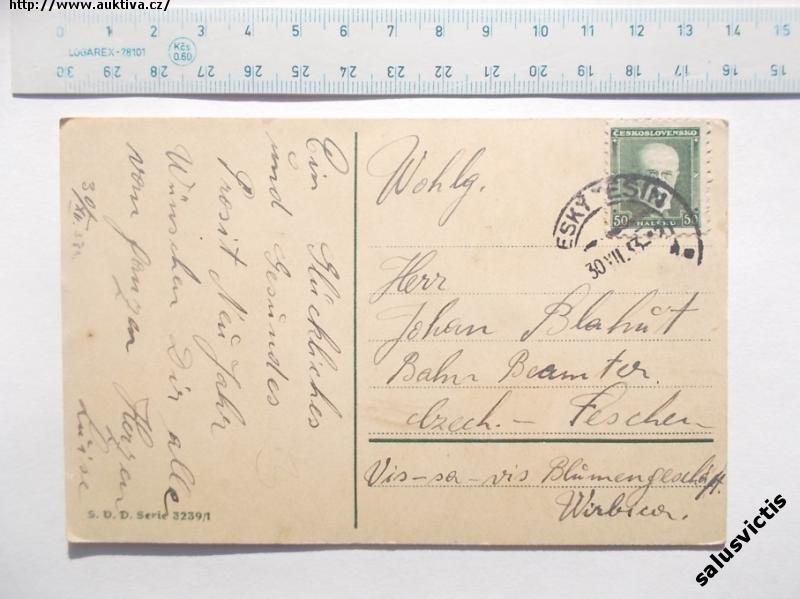 http://www.auktiva.cz/
0 1 2 3 4 5 6 7 8 9 10 11 12 13 14 15
LOGAREX-28101
Kčs 0,60
30 29 28 27 26 25 24 23 22 21 20 19 18 17 16 15
Ein Glückliches
und Gesundes
Prosit Neu Jahr
Wünschen Dir alle
vom ganzen Herzen
Luise
30/XII.
S. D. D. Serie 3239/1
ČESKOSLOVENSKO
50 HALÉŘŮ 50
ESKÝ TĚŠÍN
30.XII.33
Wohlg.
Herr
Johan Blahŭt
Bahn Beamter.
Czech. - Teschen
Vis-sa-vis Blŭmengeschäft
salusvictis